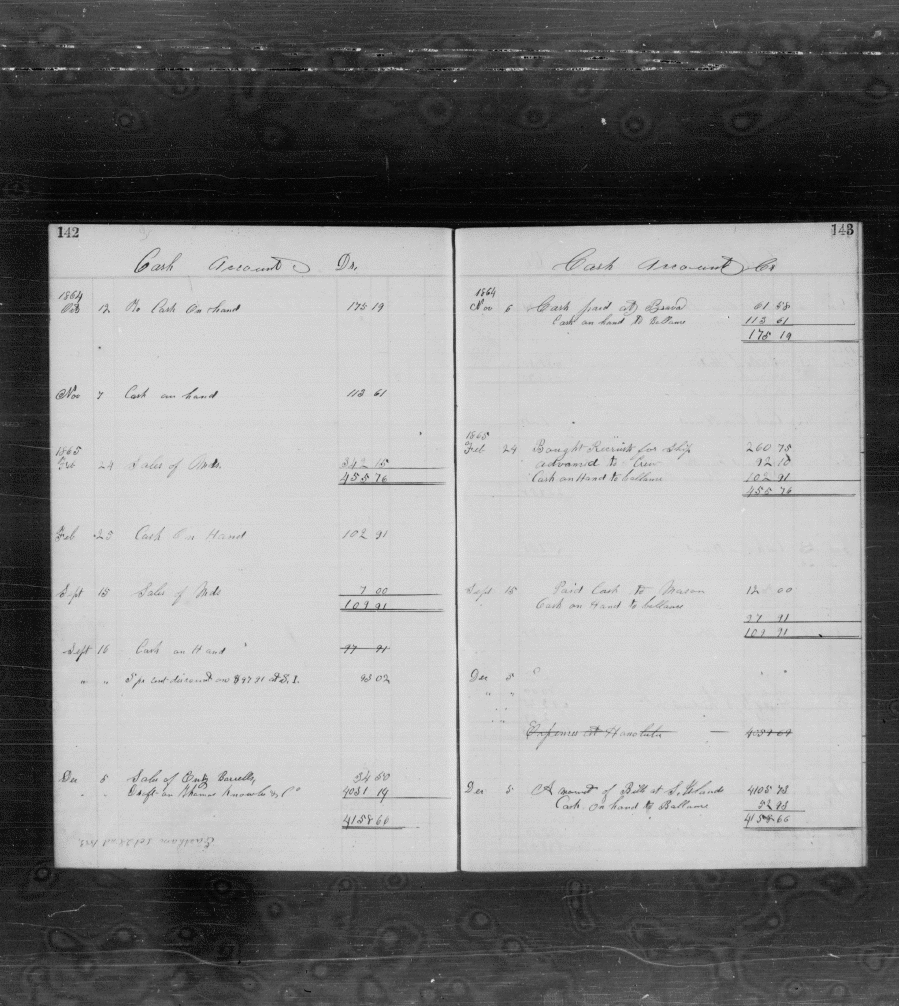 142
Cash Account Dr.
1864
Oct 12 To Cash On hand 175 19
Nov 7 Cash on hand 113 61
1865
Feb 24 Sales of Mds. 342 15
455 76
Feb 25 Cash On Hand 102 91
Sept 15 Sales of Mds 7 00
109 91
Sept 16 Cash on Hand 97 91
" " 5 pr cent discount on $97 91 at S. I. 93 02
Dec 5 Sales of Empty Barrells 34 50
" " Draft on Thomas Knowles & Co 4031 14
4158 66
143
Cash Account Cr
1864
Nov 6 Cash paid at Brava 61 58
Cash on hand to Ballance 113 61
175 19
1865
Feb 24 Bought Recruits for Ship 260 75
advanced to Crew 92 10
Cash on Hand to ballance 102 91
455 76
Sept 15 Paid Cash to Mason 12 00
Cash on Hand to ballance
97 91
109 91
Dec 5 " "
" "
Expenses at Honolulu —
Dec 5 Amount of Bill at S. Islands 4105 73
Cash on hand to Ballance 52 93
4158 66